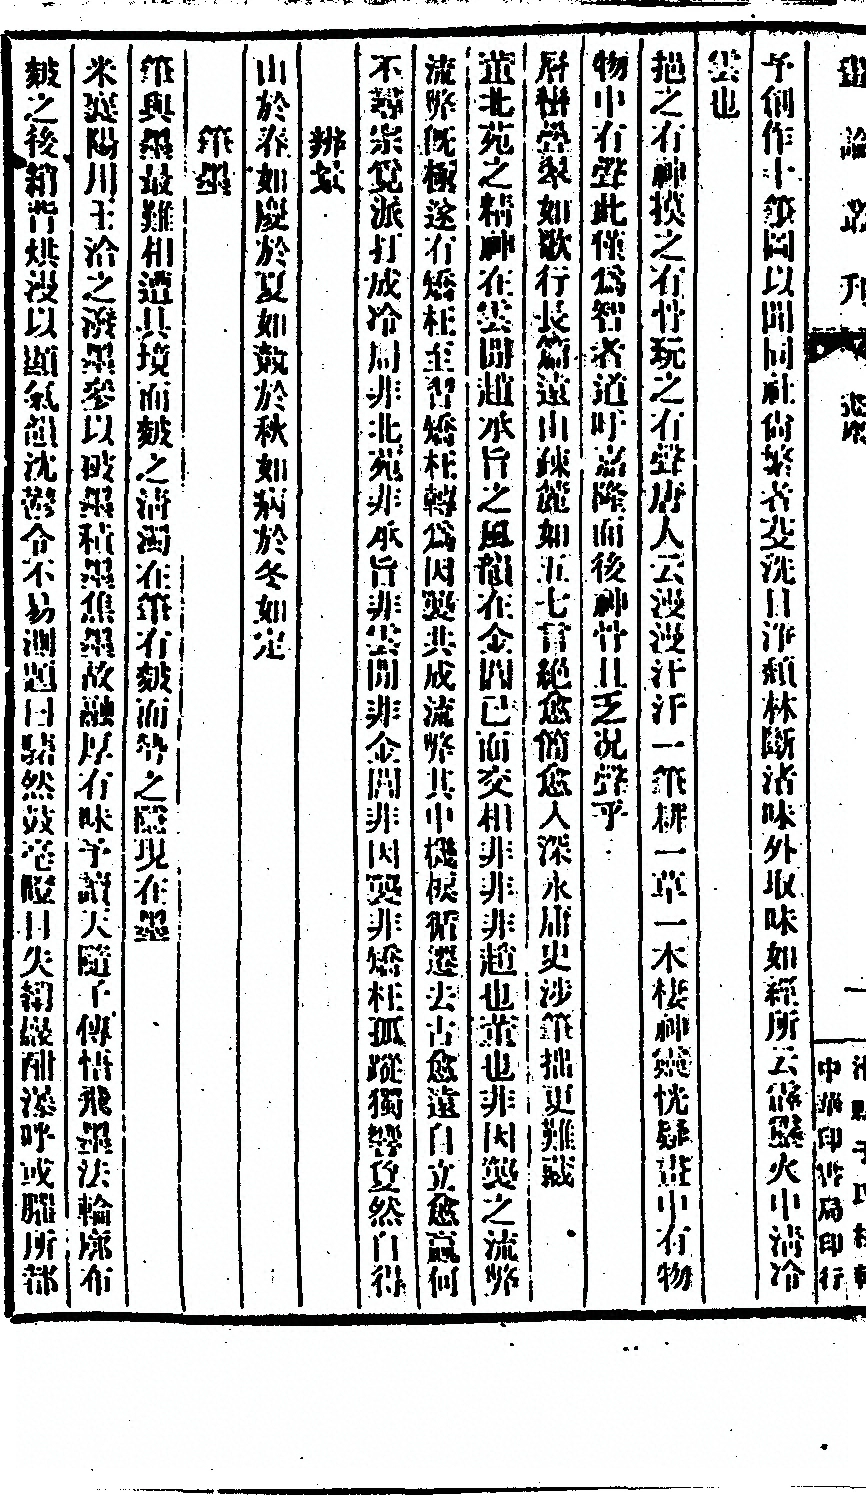 畫論叢刊
予創作十筆圖以聞同社尙繁者芟洗且淨頹林斷渚味外取味如經所云當墮火中淸冷
雲也
挹之有神摸之有骨玩之有聲唐人云漫漫汗汗一筆耕一草一木棲神靈恍疑畫中有物
物中有聲此僅爲智者道吁嘉隆而後神骨且乏况聲乎
層巒疊翠如歌行長篇遠山疎麓如五七言絕愈簡愈入深永庸史涉筆拙更難藏
董北苑之精神在雲間趙承旨之風韻在金閶已而交相非非非趙也董也非因襲之流弊
流弊旣極遂有矯枉至習矯枉轉爲因襲共成流弊其中機棙循遷去古愈遠自立愈羸何
不尋宗覓派打成冷局非北苑非承旨非雲間非金閶非因襲非矯枉孤蹤獨響夐然自得
辨景
山於春如慶於夏如競於秋如病於冬如定
筆墨
筆與墨最難相遭具境而皴之淸濁在筆有皴而勢之隱現在墨
米襄陽用王洽之潑墨參以破墨積墨焦墨故融厚有味予讀天隨子傳悟飛墨法輪廓布
皴之後綃背烘漫以顯氣韻沈鬱令不易測題曰驀然鼓毫瞪目失綃巖酣瀑呼或臞所都
中華印書局印行